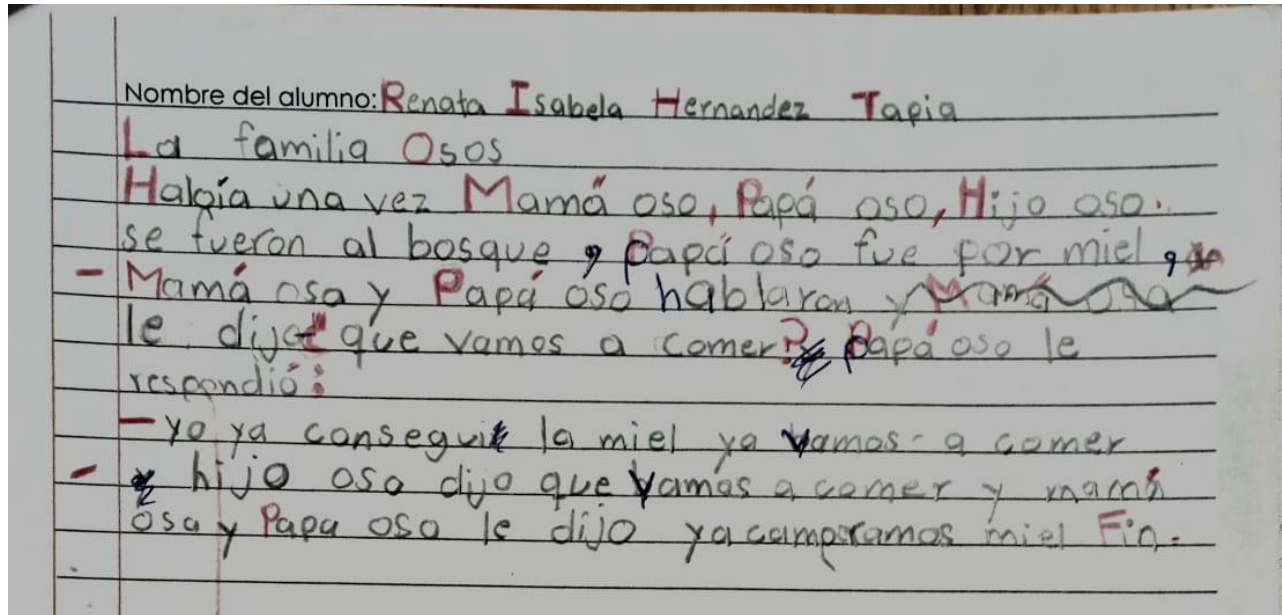 Nombre del alumno: Renata Isabela Hernandez Tapia
La familia Osos
Había una vez Mamá oso, Papá oso, Hijo oso.
se fueron al bosque, Papá oso fue por miel,
- Mamá osa y Papá oso hablaron y Mamá osa
le dijo que vamos a comer? Papá oso le
respondió:
- yo ya conseguí la miel ya vamos a comer
- hijo oso dijo que vamos a comer y mamá
osa y Papa oso le dijo ya compramos miel Fin.